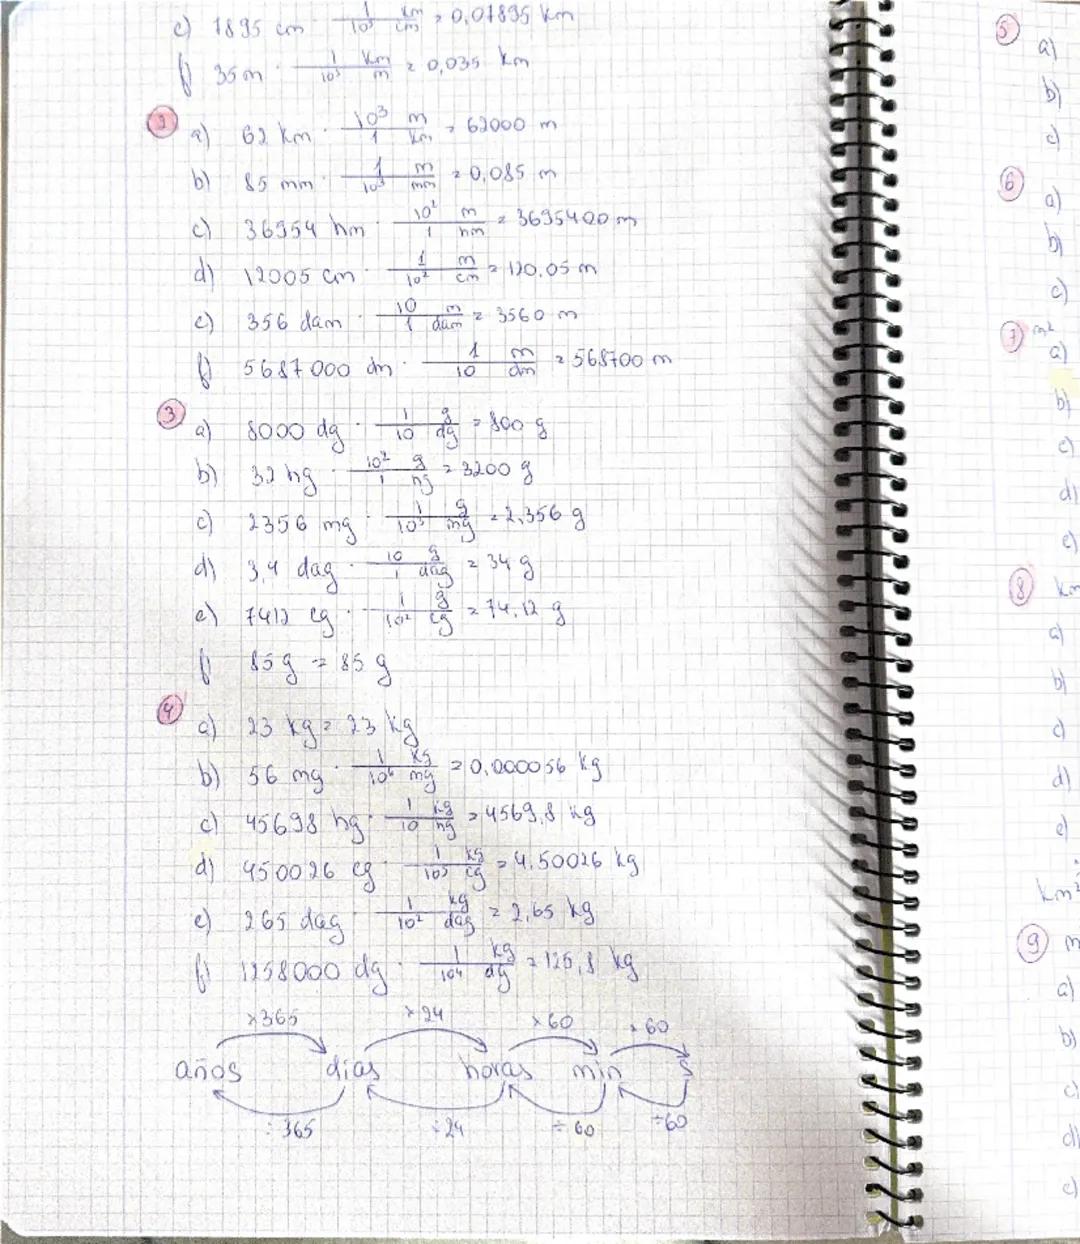 e) 1895 cm · 1/10⁵ km/cm = 0,01895 km
f) 35 m · 1/10³ km/m = 0,035 km
2 a) 62 km · 10³/1 m/km = 62000 m
b) 85 mm · 1/10³ m/mm = 0,085 m
c) 36954 hm · 10²/1 m/hm = 3695400 m
d) 12005 cm · 1/10² m/cm = 120,05 m
e) 356 dam · 10/1 m/dam = 3560 m
f) 5687000 dm · 1/10 m/dm = 568700 m
3 a) 8000 dg · 1/10 g/dg = 800 g
b) 32 hg · 10²/1 g/hg = 3200 g
c) 2356 mg · 1/10³ g/mg = 2,356 g
d) 3,4 dag · 10/1 g/dag = 34 g
e) 7412 cg · 1/10² g/cg = 74,12 g
f) 85 g = 85 g
4 a) 23 kg = 23 kg
b) 56 mg · 1/10⁶ kg/mg = 0,000056 kg
c) 45698 hg · 1/10 kg/hg = 4569,8 kg
d) 450026 cg · 1/10⁵ kg/cg = 4,50026 kg
e) 265 dag · 1/10² kg/dag = 2,65 kg
f) 1258000 dg · 1/10⁴ kg/dg = 125,8 kg
×365 ×24 ×60 ×60
años días horas min s
÷365 ÷24 ÷60 ÷60
5 a)
b)
c)
6 a)
b)
c)
7 m²
a)
b)
c)
d)
e)
8 km
a)
b)
c)
d)
e)
km²
9 m
a)
b)
c)
d)
e)